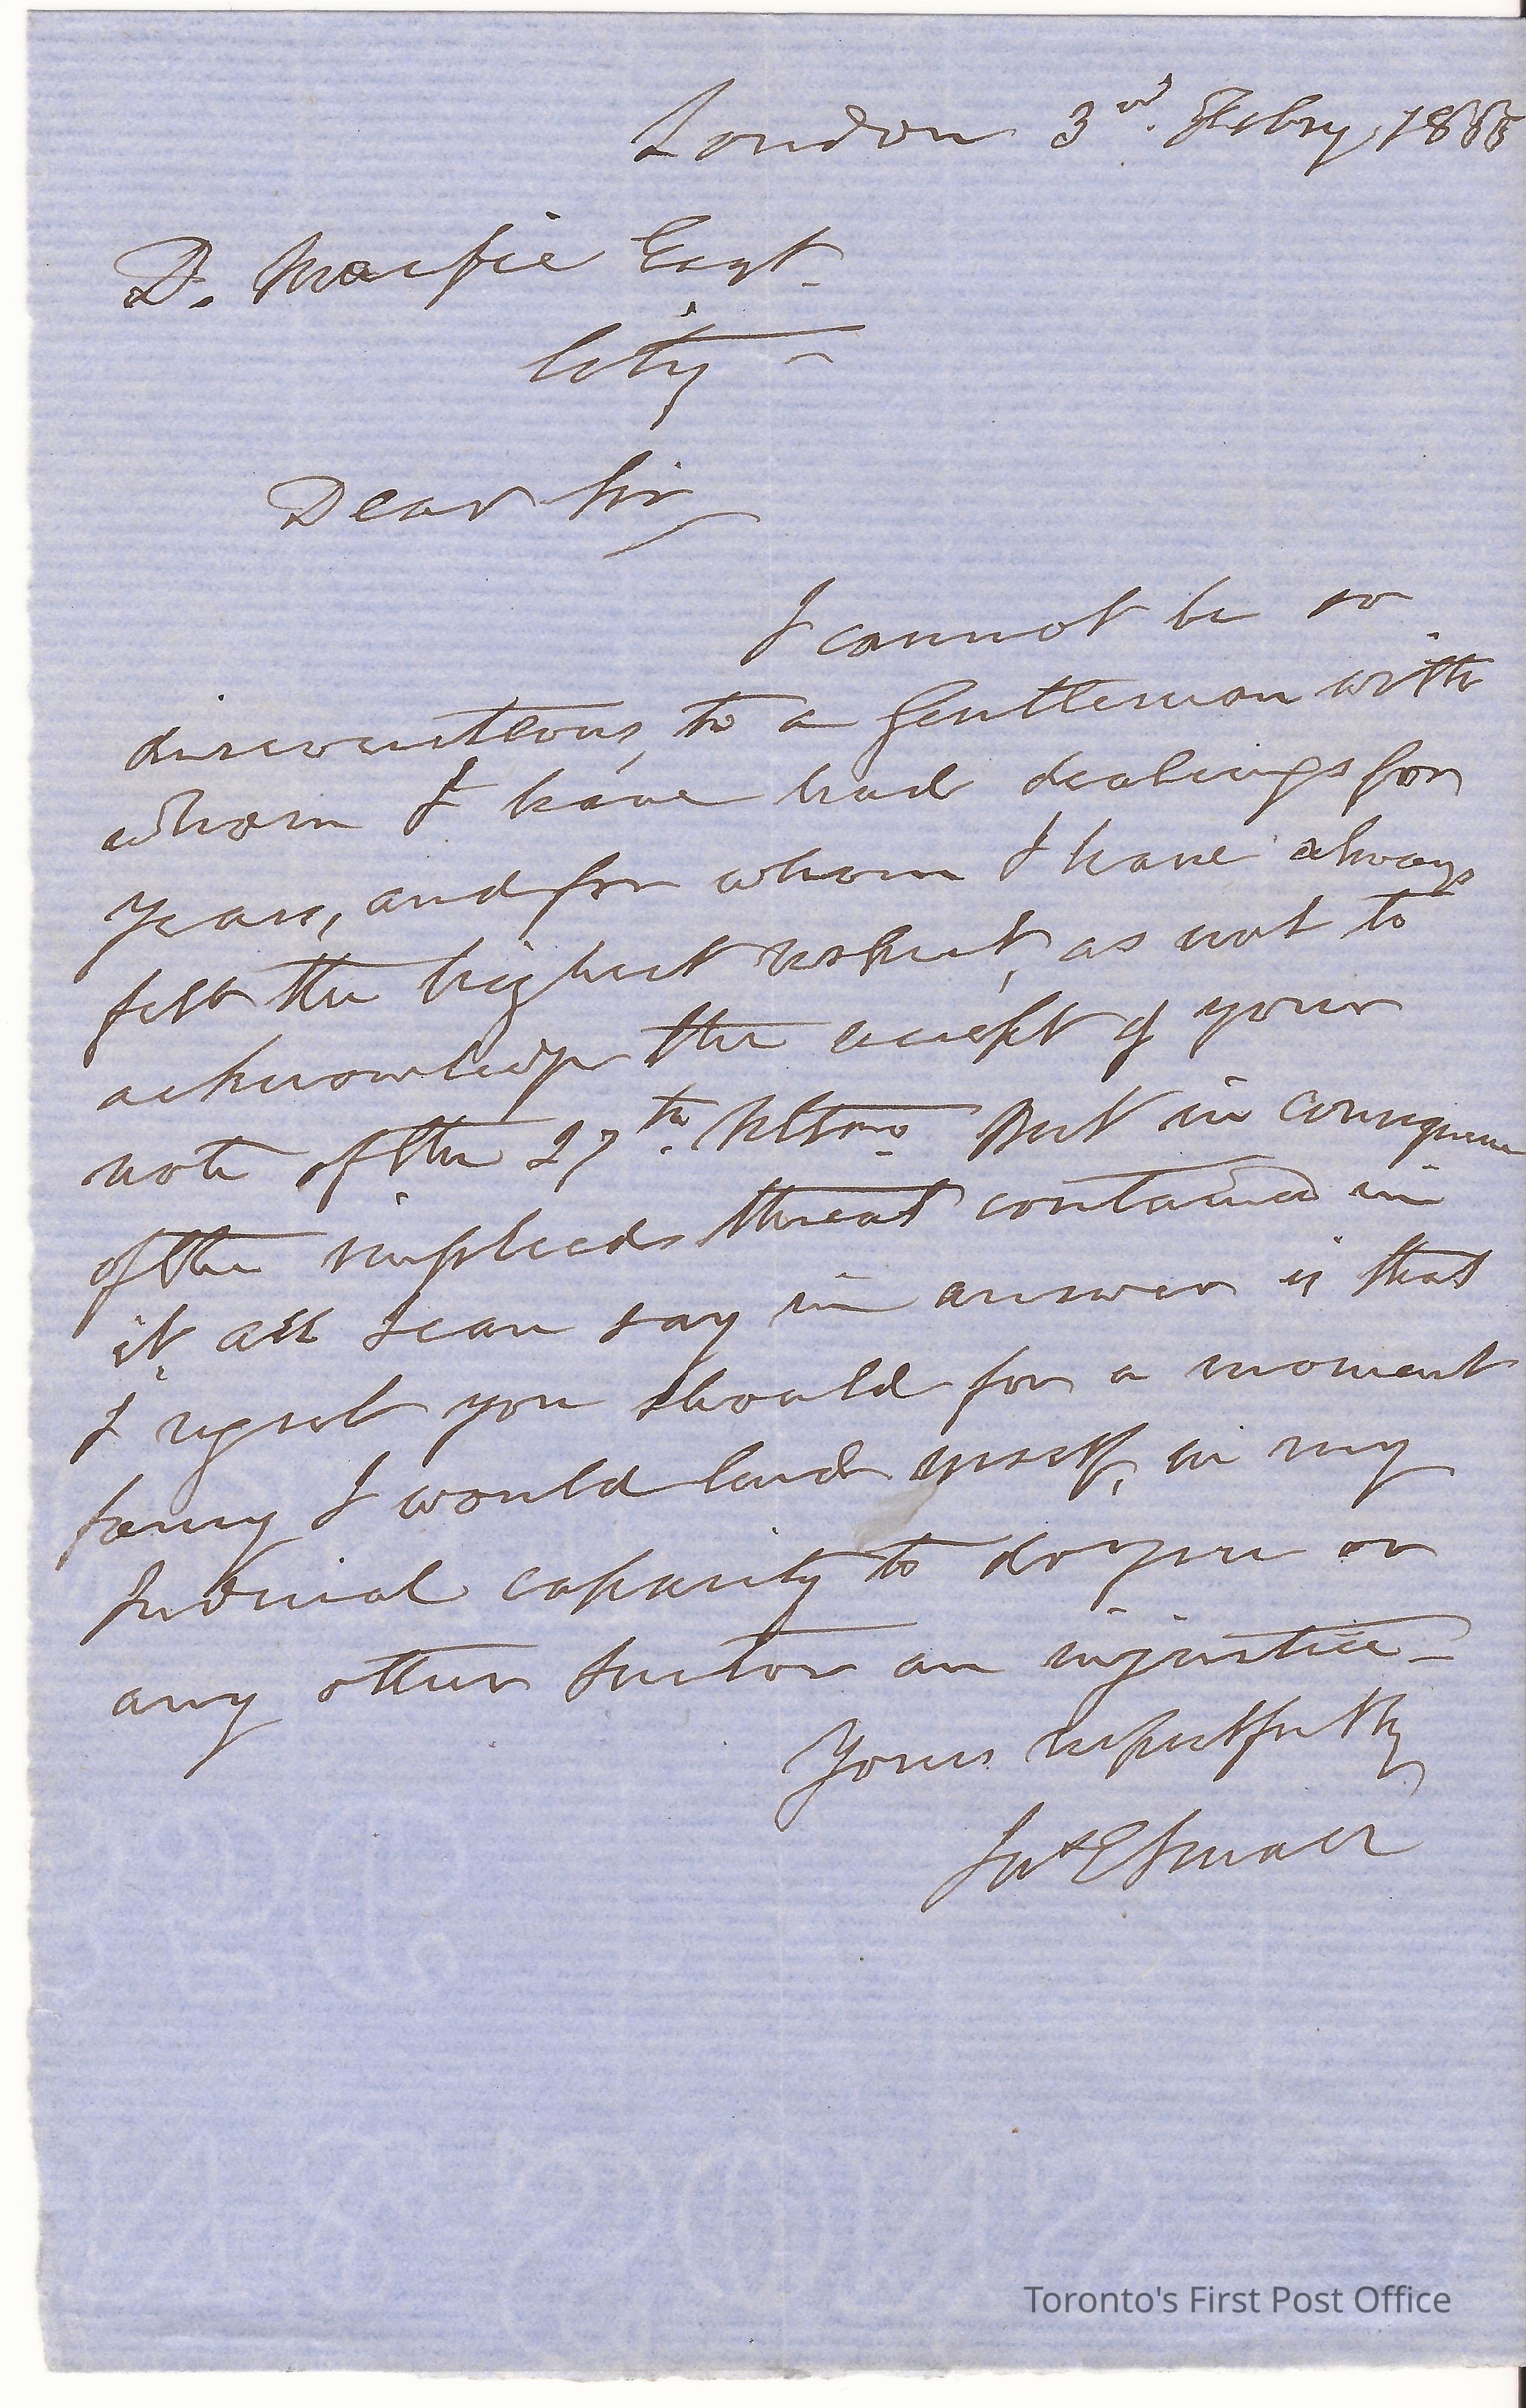 London 3rd. Febry, 18
D. Macfie Esqr.
City
Dear Sir
I cannot be so
discourteous, to a Gentleman with
whom I have had dealings for
years, and for whom I have always
felt the highest respect, as not to
acknowledge the receipt of your
note of the 27th. Ultmo But in consequence
of the implieds threat contained in
it, all I can say in answer is that
I regret you should for a moment
fancy I would lend myself, in my
Judicial capacity to do you or
any other Suitor an injustice_
Yours respectfully
Small
Toronto's First Post Office